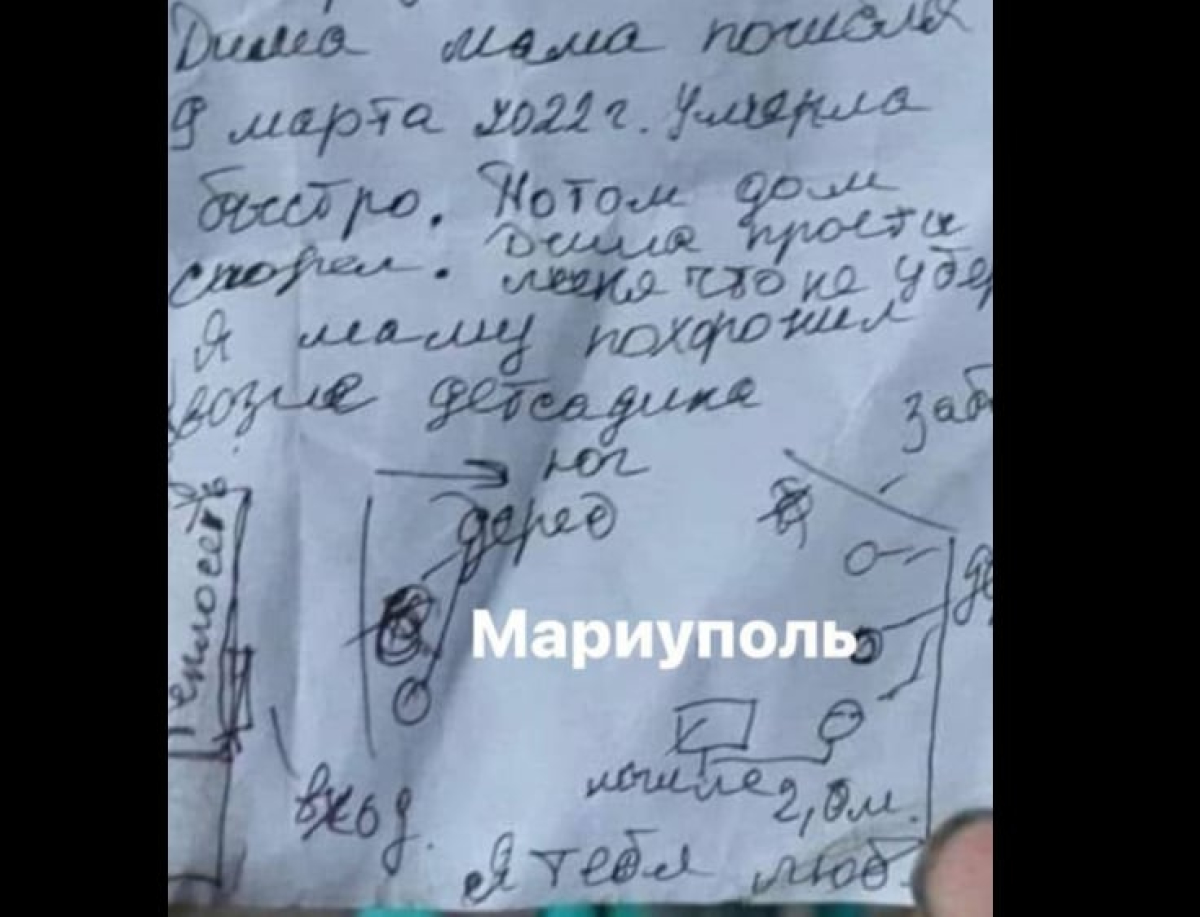 Дима мама погибла
9 марта 2022 г. Умерла
быстро. Потом дом
сгорел. Дима прости
меня что не убер
Я маму похоронил
возле детсадика
заб
юг
дерев
Теплосеть
Мариуполь
де
могила 2,0 м.
вход.
Я тебя люб